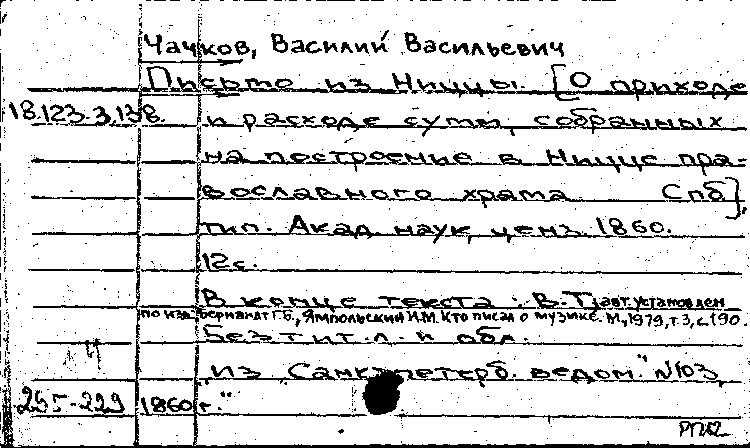 Чачков, Василий Васильевич
Письмо из Ниццы. [О приходе
18.123.3.138. и расходе сумм, собранных
на построение в Ницце пра-
вославного храма Спб],
тип. Акад. наук, ценз. 1860.
12 с.
В конце текста: В. Т; авт. установлен
по изд. Бернандт Г.Б., Ямпольский И.М. Кто писал о музыке. М., 1979, т.3, с.190.
Без тит. л. и обл.
"Из "Санктпетерб. ведом." №103,
255-229 1860 г."